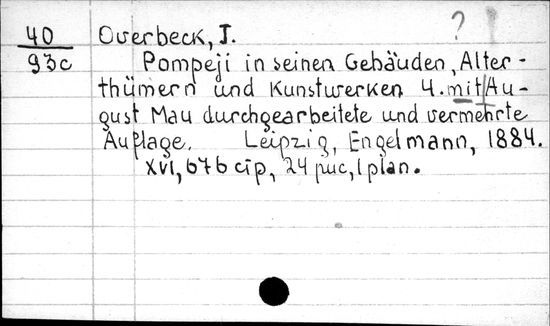 40 Overbeck, J. ?
93c Pompeji in seinen Gebäuden, Alter-
thümern und Kunstwerken 4. mit Au-
gust Mau durchgearbeitete und vermehrte
Auflage. Leipzig, Engelmann, 1884.
XVI, 676 стр, 24 рис, 1 plan.